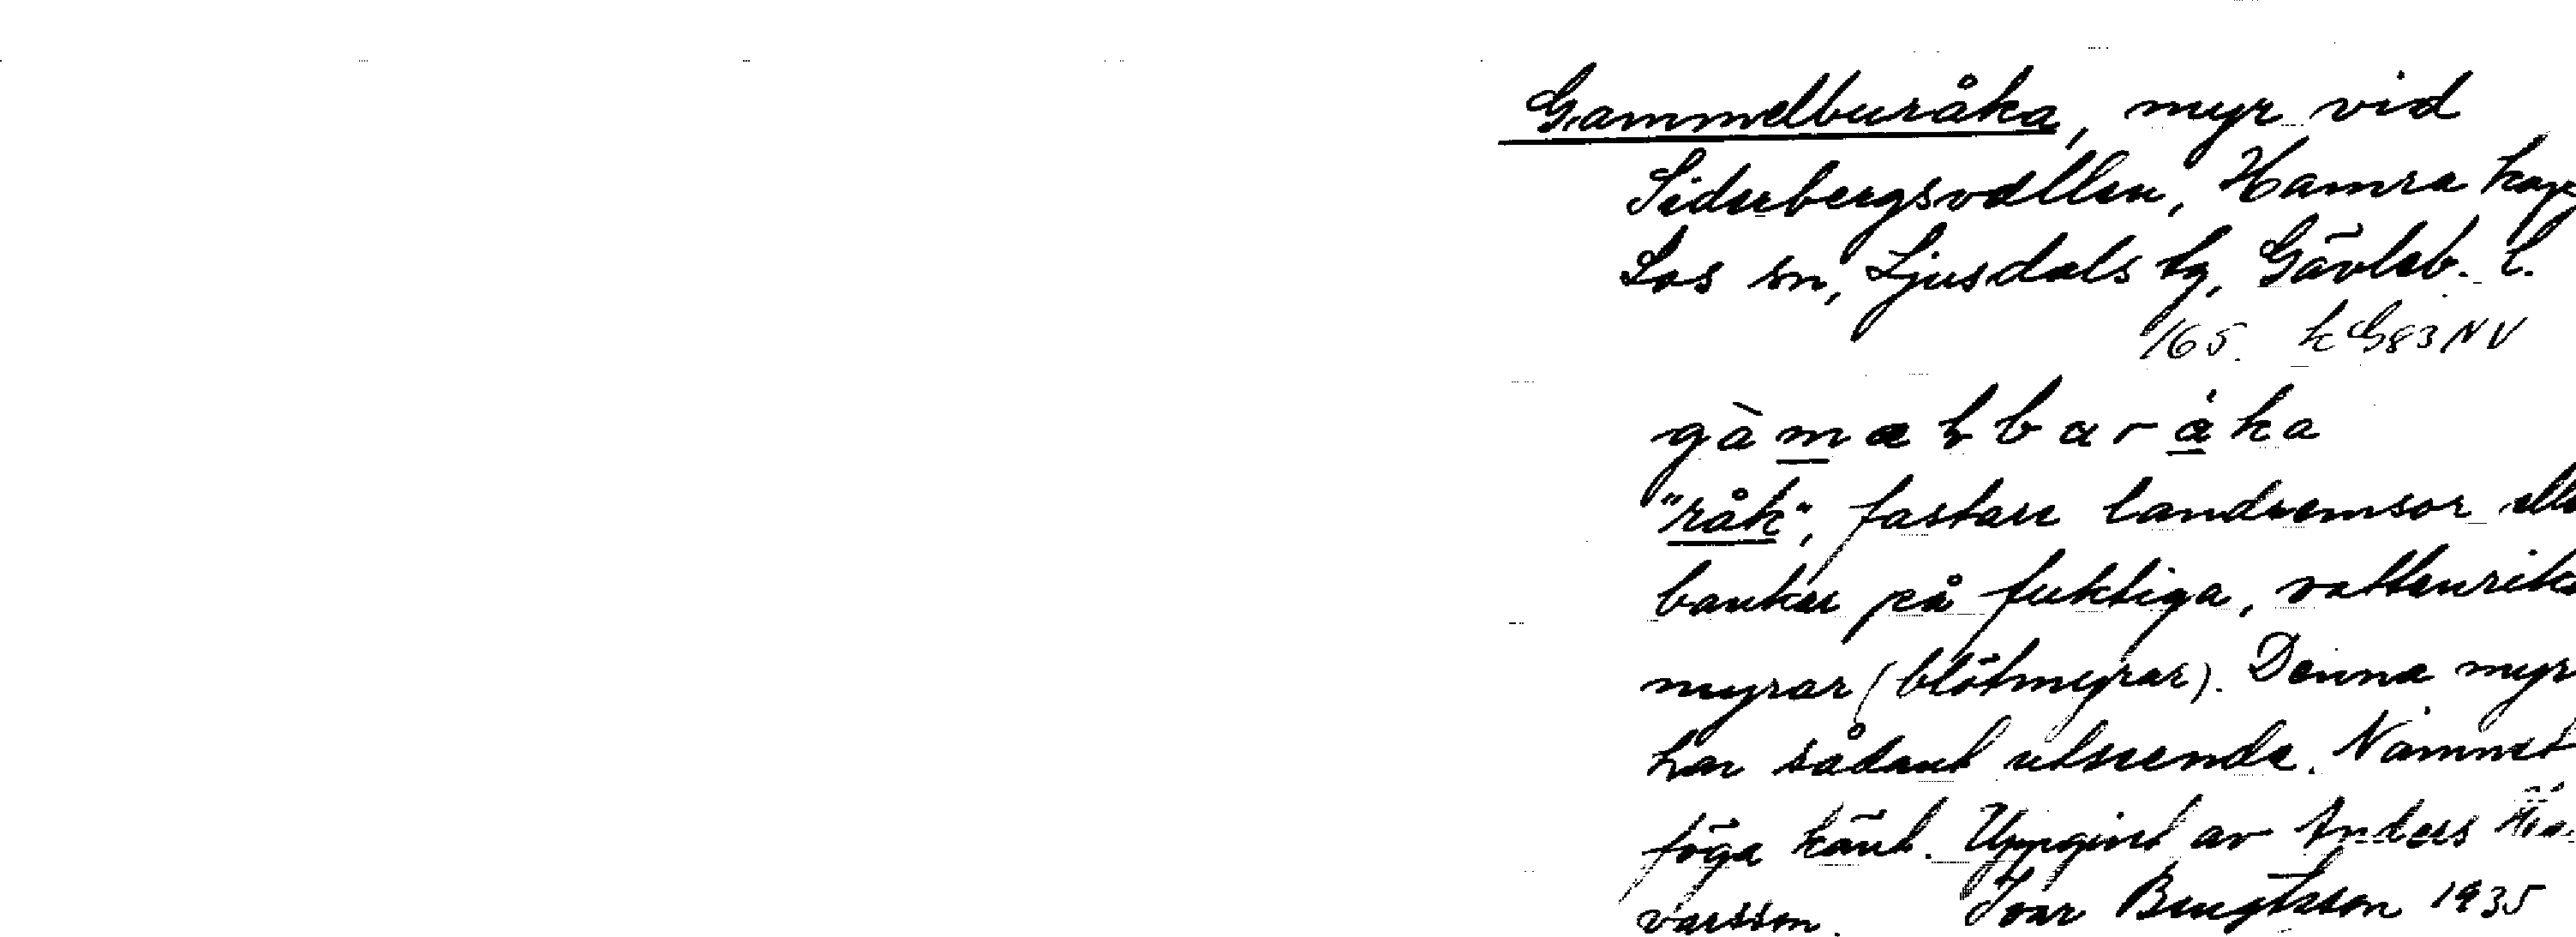 Gammelburåka, myr vid
Siderbergsvallen, Hamra kap
Los sn, Ljusdals tg, Gävleb. l.
165. k G83NV
"råk", fastare landremsor elle
banker på fuktiga, vattenrika
myrar (blötmyrar). Denna myr
har sådant utseende. Namnet
föga känt. Uppgivet av Anders
varsson. Ivar Bengtsson 1935